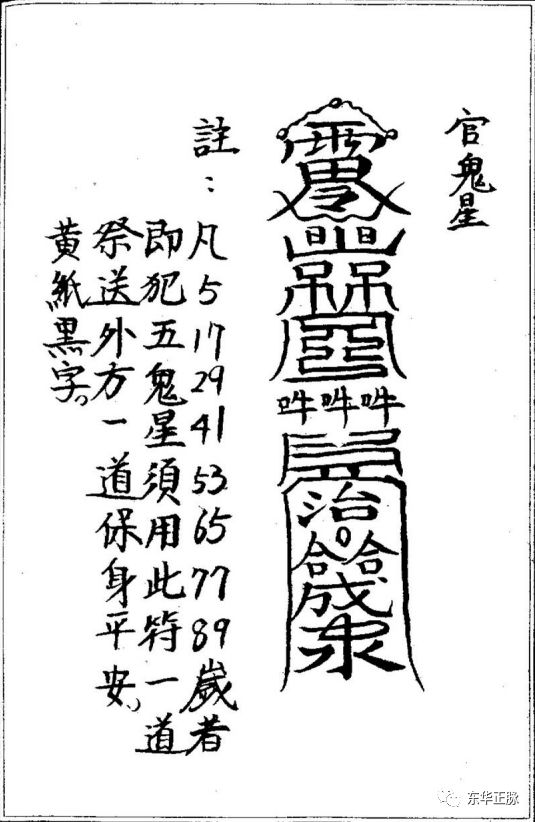 官鬼星
吽吽吽
治
合合
成
註：
凡5 17 29 41 53 65 77 89歲者
即犯五鬼星須用此符一道
祭送外方一道保身平安，
黃紙黑字，
东华正脉